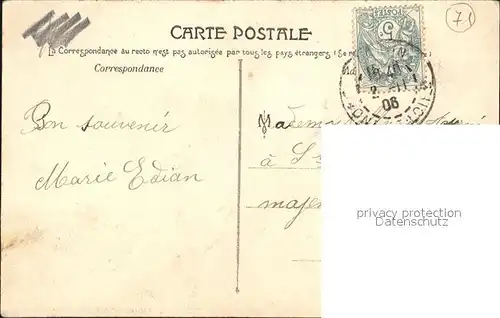 71
CARTE POSTALE
La Correspondance au recto n'est pas autorisée par tous les pays étrangers (Se re
Correspondance
5
POSTES
06
Bon souvenir
Marie Edian
Madem
à S
majen
privacy protection
www.oldthing.com